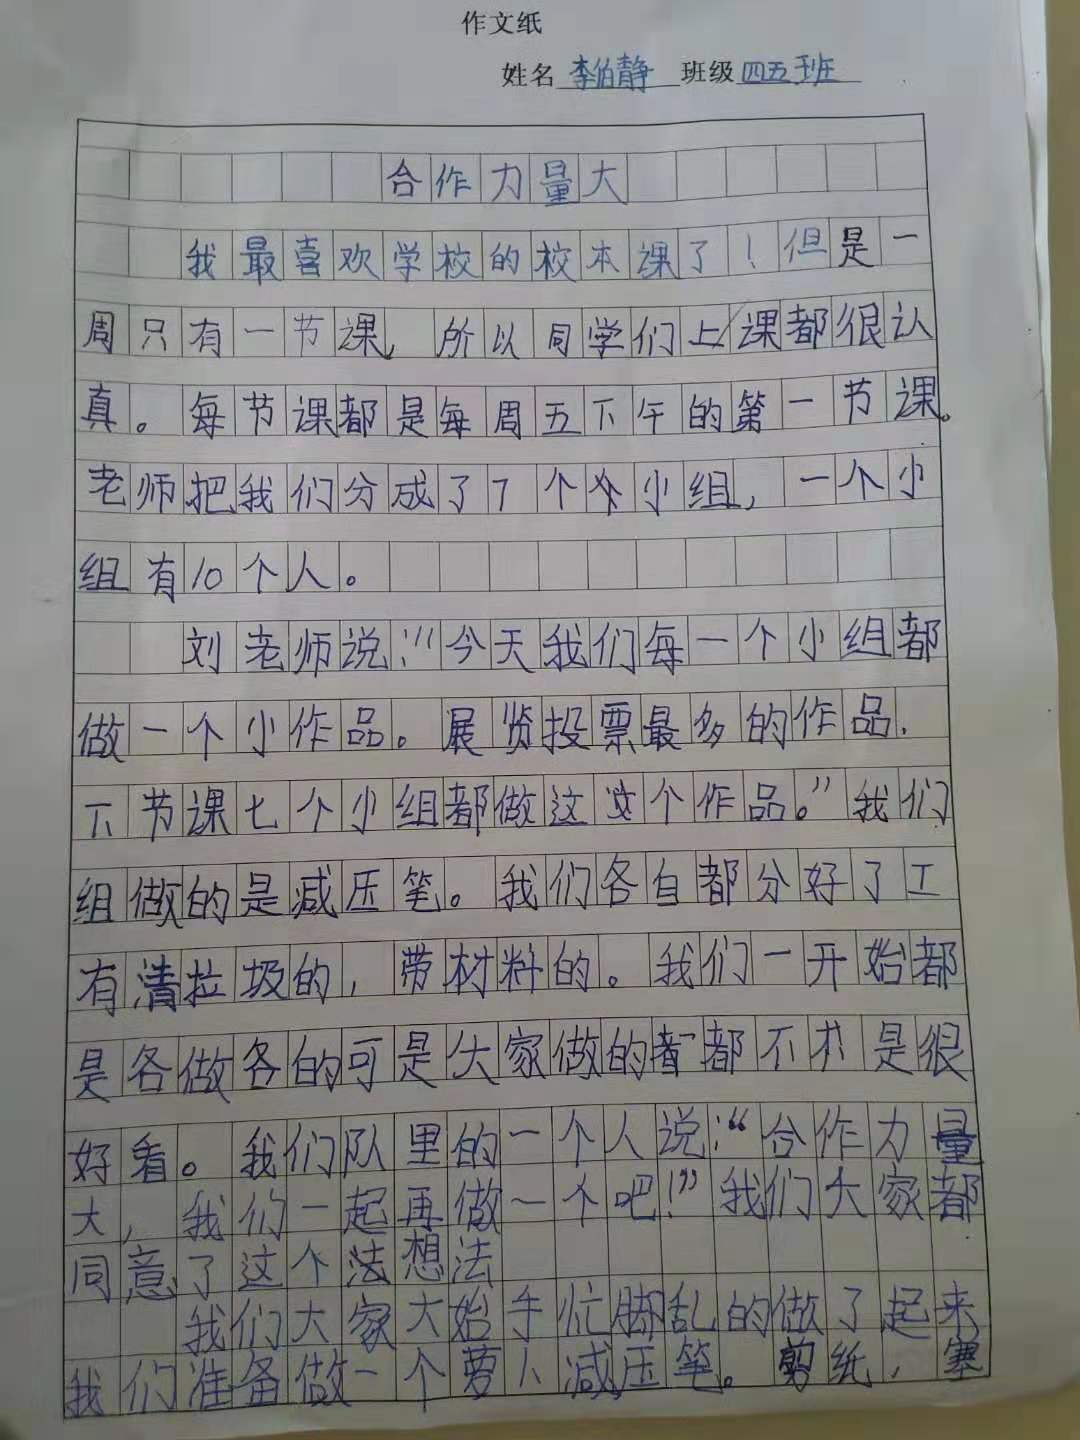 作文纸
姓名 李伯静 班级 四五班
合作力量大
我最喜欢学校的校本课了！但是一
周只有一节课，所以同学们上课都很认
真。每节课都是每周五下午的第一节课。
老师把我们分成了7个小组，一个小
组有10个人。
刘老师说：“今天我们每一个小组都
做一个小作品。展览投票最多的作品.
下节课七个小组都做这这个作品。”我们
组做的是减压笔。我们各自都分好了工
有清垃圾的，带材料的。我们一开始都
是各做各的可是大家做的都不是很
好看。我们队里的一个人说：“合作力量
大，我们一起再做一个吧！”我们大家都
同意了这个想法
我们大家大始手忙脚乱的做了起来
我们准备做一个萝卜减压笔。剪纸，塞